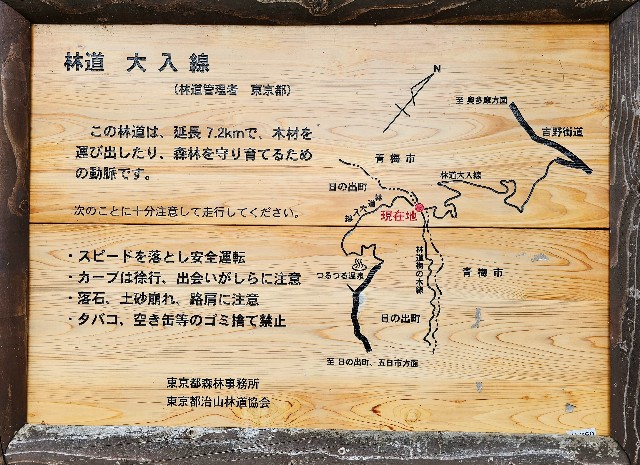 林道 大入線
(林道管理者 東京都)
この林道は、延長7.2kmで、木材を
運び出したり、森林を守り育てるため
の動脈です。
次のことに十分注意して走行してください。
・スピードを落とし安全運転
・カーブは徐行、出会いがしらに注意
・落石、土砂崩れ、路肩に注意
・タバコ、空き缶等のゴミ捨て禁止
東京都森林事務所
東京都治山林道協会
N
至 奥多摩方面
吉野街道
青梅市
林道大入線
日の出町
現在地
つるつる温泉
林道梅の木線
青梅市
日の出町
至 日の出町、五日市方面